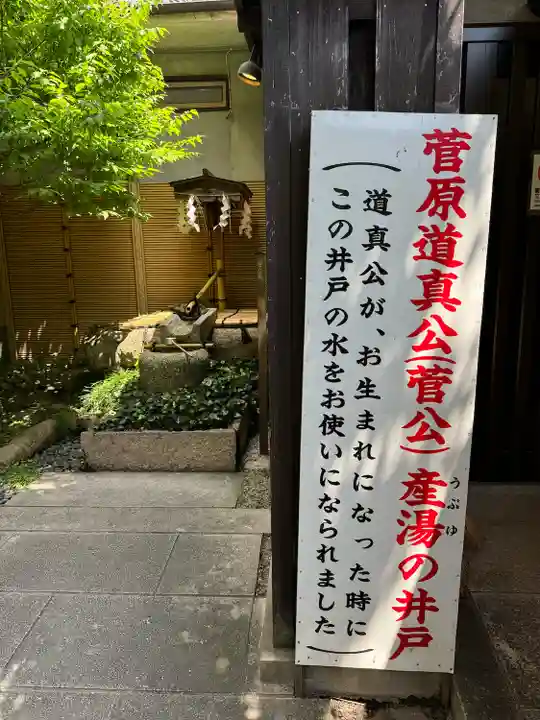 菅原道真公(菅公)産湯の井戸
うぶゆ
(道真公が、お生まれになった時に
この井戸の水をお使いになられました)